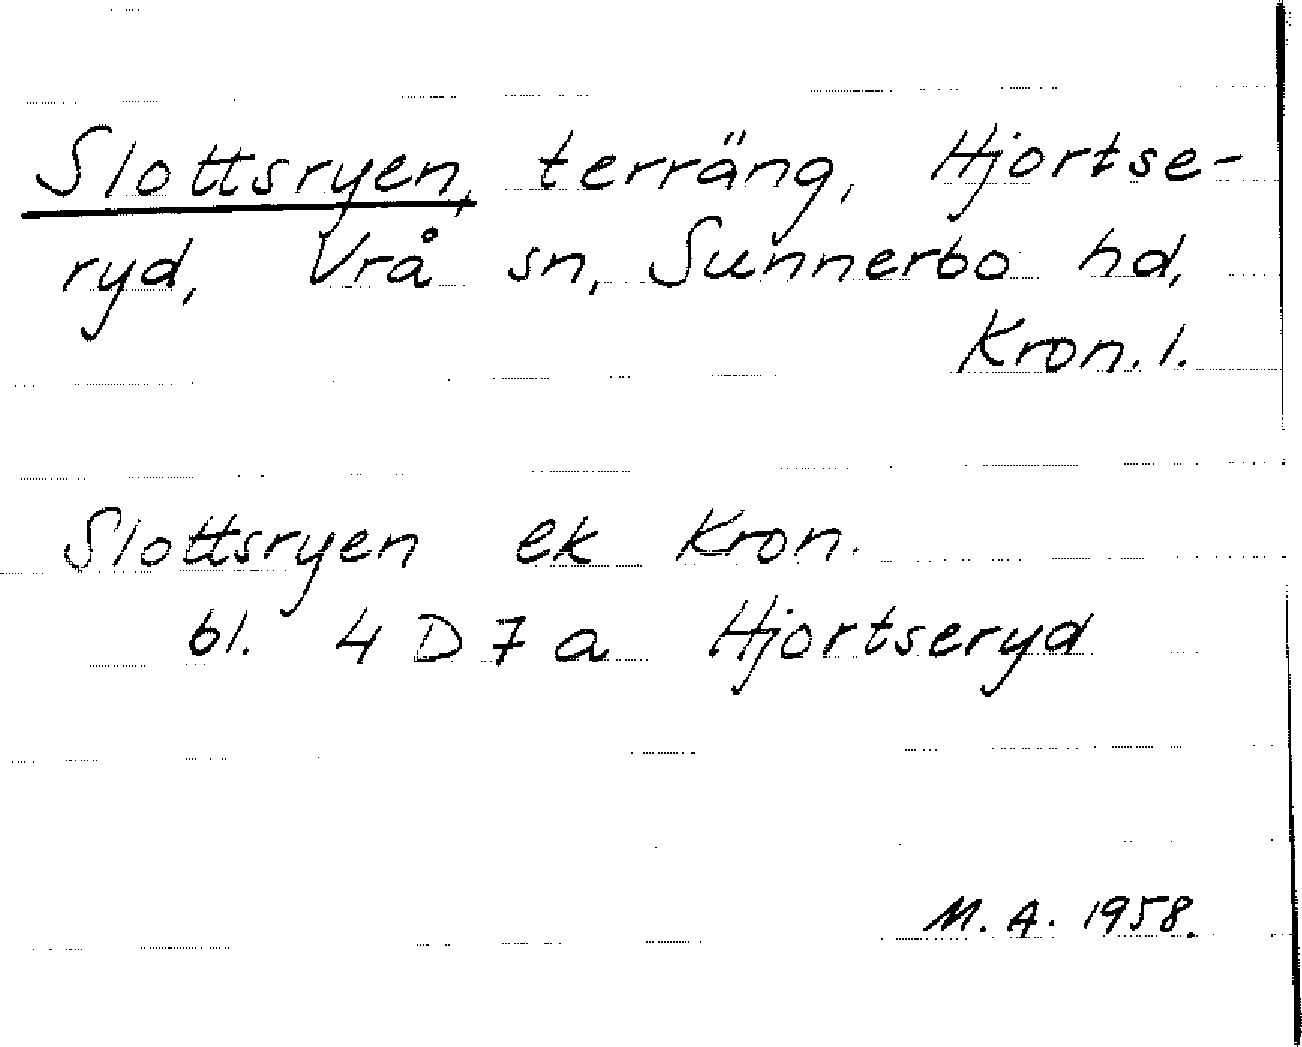 Slottsryen, terräng, Hjortse-
ryd, Vrå sn, Sunnerbo hd,
Kron. l.
Slottsryen ek Kron.
bl. 4 D 7 a Hjortseryd
M. A. 1958.